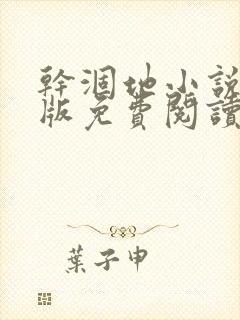 幹涸地小説
版免費閱讀
葉子申